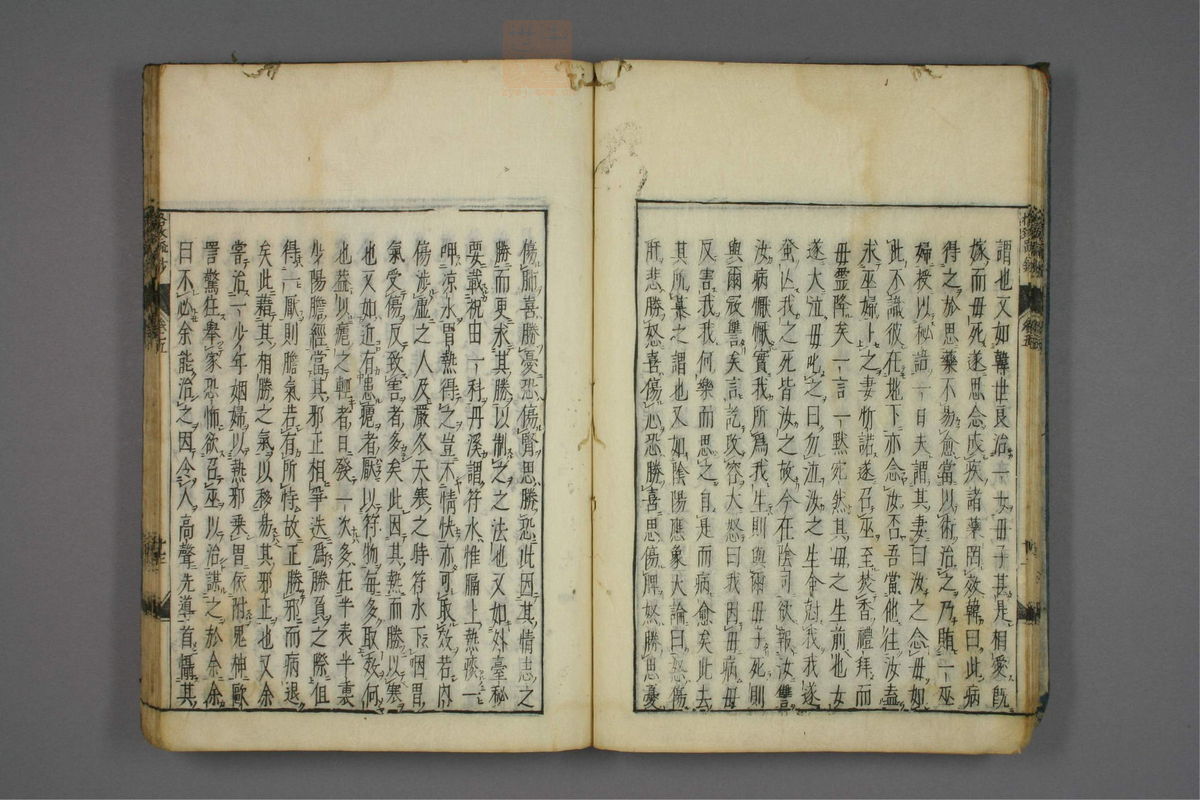 謂也又如韓世良治一女毋子甚是相愛既
嫁而毋死遂思念成疾諸藥罔效韓曰此病
得之於思藥不易愈當以術治之乃賄一巫
婦授以秘諺一日夫謂其妻曰汝之念毋如
此不識彼在地下亦念汝否吾當他往汝盍
求巫婦卜之妻忻諾遂召巫至焚香禮拜而
毋靈降矣一言一黙宛然其毋之生前也女
遂大泣毋叱之曰勿泣汝之生命尅我我遂
蚤亾我之死皆汝之故今在陰司欲報汝讐
汝病懨懨實我所爲我生則與爾毋子死則
與爾寇讐矣言訖女改容大怒曰我因毋病毋
反害我我何樂而思之自是而病愈矣此去
其所慕之謂也又如陰陽應象大論曰怒傷
肝悲勝怒喜傷心恐勝喜思傷脾怒勝思憂
傷肺喜勝憂恐傷腎思勝恐此因其情志之
勝而更求其勝以制之之法也又如外臺秘
要載祝由一科丹溪謂符水惟膈上熱痰一
呷凉水胃熱得之豈不情快亦可取效若內
傷涉虛之人及嚴冬天寒之時符水下咽胃
氣受傷反致害者多矣此因其熱而勝以寒
也又如近有患瘧者厭以符物每多取效何
也葢以瘧之輕者日發一次多在半表半裏
少陽膽經當其邪正相爭迭爲勝負之際但
得一厭則膽氣若有所恃故正勝邪而病退
矣此藉其相勝之氣以移易其邪正也又余
嘗治一少年姻婦以熱邪乗胃依附鬼神毆
詈驚狂舉家恐怖欲召巫以治謀之於余余
曰不必余能治之因令人高聲先導首懾其
卷之五